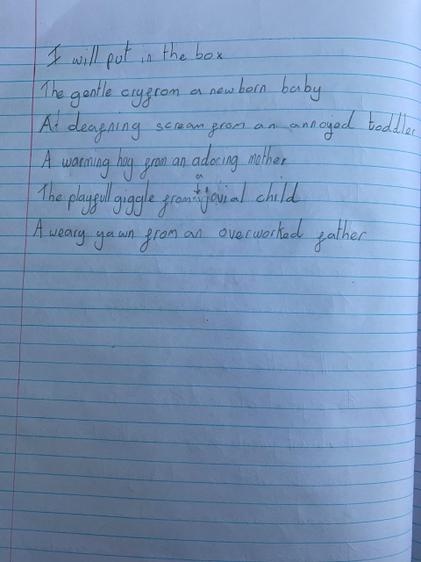 I will put in the box
The gentle cry from a new born baby
A deafning scream from an annoyed toddler
A warming hug from an adoring mother
The playfull giggle from a jovial child
A weary yawn from an overworked father